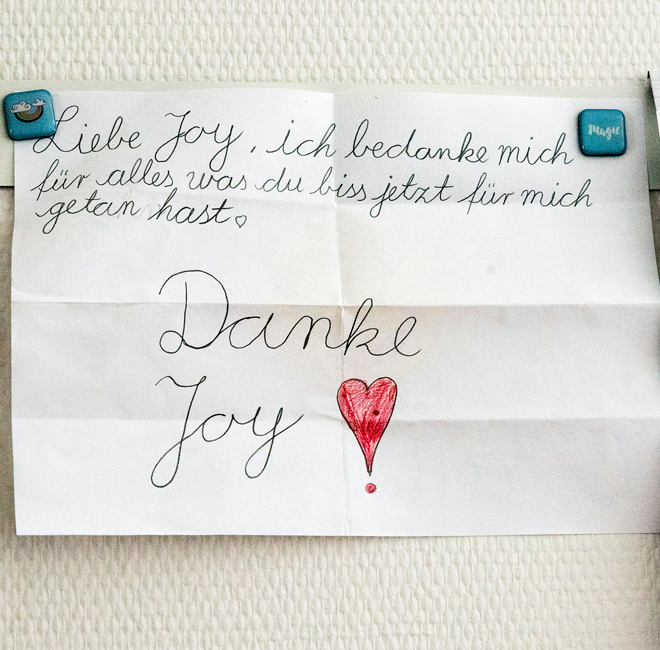 Liebe Joy, ich bedanke mich
Magic
für alles was du biss jetzt für mich
getan hast♡
Danke
Joy